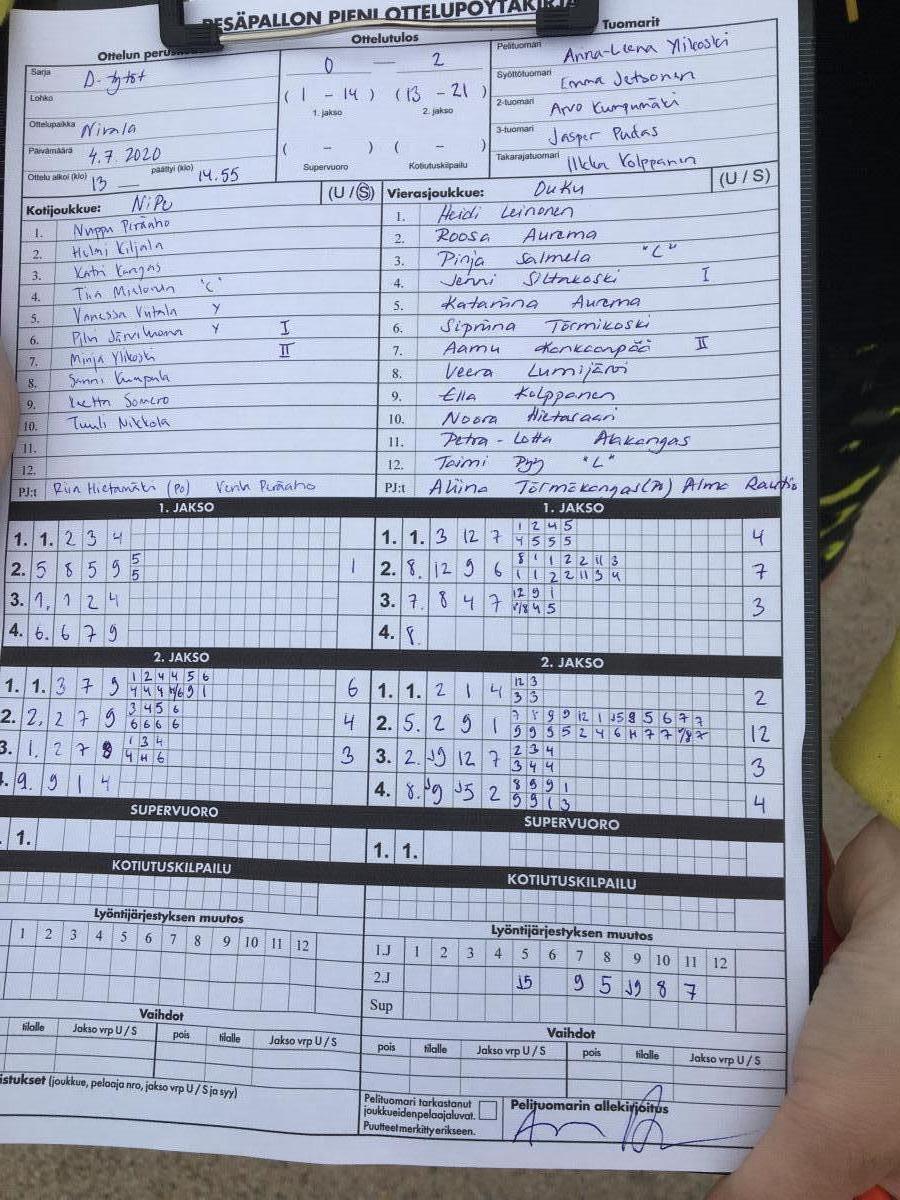 PESÄPALLON PIENI OTTELUPÖYTÄKIRJA
Ottelun
Ottelutulos
Tuomarit
Sarja D-tytöt
Lohko
Ottelupaikka Nivala
Päivämäärä 4.7.2020
Ottelu alkoi (klo) 13 — päättyi (klo) 14.55
0 — 2
( 1 - 14 ) ( 13 - 21 )
1. jakso 2. jakso
( - ) ( - )
Supervuoro Kotiutuskilpailu
Pelituomari Anna-Leena Ylikoski
Syöttötuomari Emma
2-tuomari Arvo Kumpumäki
3-tuomari Jasper Pudas
Takarajatuomari Ilkka Kolppanen
Kotijoukkue: NiPu (U / S)
1. Nuppu Peräaho
2. Helmi Kiljala
3. Katri Kangas
4. Tiia "C"
5. Vanessa Viitala Y
6. Pilvi Y I
7. Minja Ylikoski II
8. Sanni Kumpula
9. Somero
10. Tuuli Nikkola
11.
12.
PJ:t Riia Hietamäki (PO) Peräaho
Vierasjoukkue: OuKu (U / S)
1. Heidi Leinonen
2. Roosa Aurema
3. Pinja Salmela "L"
4. Jenni Siltakoski I
5. Katariina Aurema
6. Törmikoski
7. Aamu Kankaanpää II
8. Veera Lumijärvi
9. Ella Kolppanen
10. Noora Hietasaari
11. Petra-Lotta Alakangas
12. Taimi Pyy "L"
PJ:t Aliina Törmäkangas Alma Rautio
1. JAKSO
1. 1. 2 3 4
2. 5 8 5 9 5 1
5
3. 1. 1 2 4
4. 6. 6 7 9
1. JAKSO
1. 1. 3 12 7 1 2 4 5 4
4 5 5 5
2. 8. 12 9 6 8 1 1 2 2 11 3 7
1 1 2 2 11 3 4
3. 7. 8 4 7 12 9 1 3
4 5
4. 8.
2. JAKSO
1. 1. 3 7 9 1 2 4 4 5 6 6
4 4 4 9 1
2. 2, 2 7 9 3 4 5 6 4
6 6 6 6
3. 1. 2 7 8 1 3 4 3
4 H 6
4. 9. 9 1 4
2. JAKSO
1. 1. 2 1 4 12 3 2
3 3
2. 5. 2 9 1 12
3. 2. J9 12 7 2 3 4 3
3 4 4
4. 8. J9 J5 2 8 9 9 1 4
9 9 1 3
SUPERVUORO
1.
SUPERVUORO
1. 1.
KOTIUTUSKILPAILU
KOTIUTUSKILPAILU
Lyöntijärjestyksen muutos
1 2 3 4 5 6 7 8 9 10 11 12
Lyöntijärjestyksen muutos
1.J 1 2 3 4 5 6 7 8 9 10 11 12
2.J J5 9 5 J9 8 7
Sup
Vaihdot
tilalle Jakso vrp U / S pois tilalle Jakso vrp U / S
Vaihdot
pois tilalle Jakso vrp U / S pois tilalle Jakso vrp U / S
istukset (joukkue, pelaaja nro, jakso vrp U / S ja syy)
Pelituomari tarkastanut
joukkueidenpelaajaluvat.
Puutteet merkitty erikseen.
Pelituomarin allekirjoitus